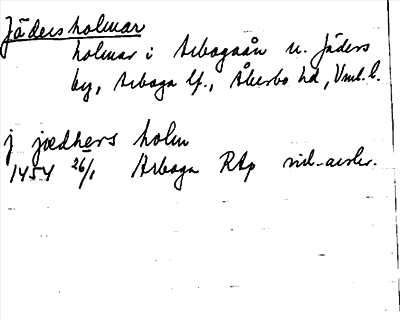 Jäders holmar
holmar i Arbogaån n. Jäders
by, Arboga lf., Åkerbo hd, Vml. l.
j jædhers holm
1454 26/1 Arboga RAp